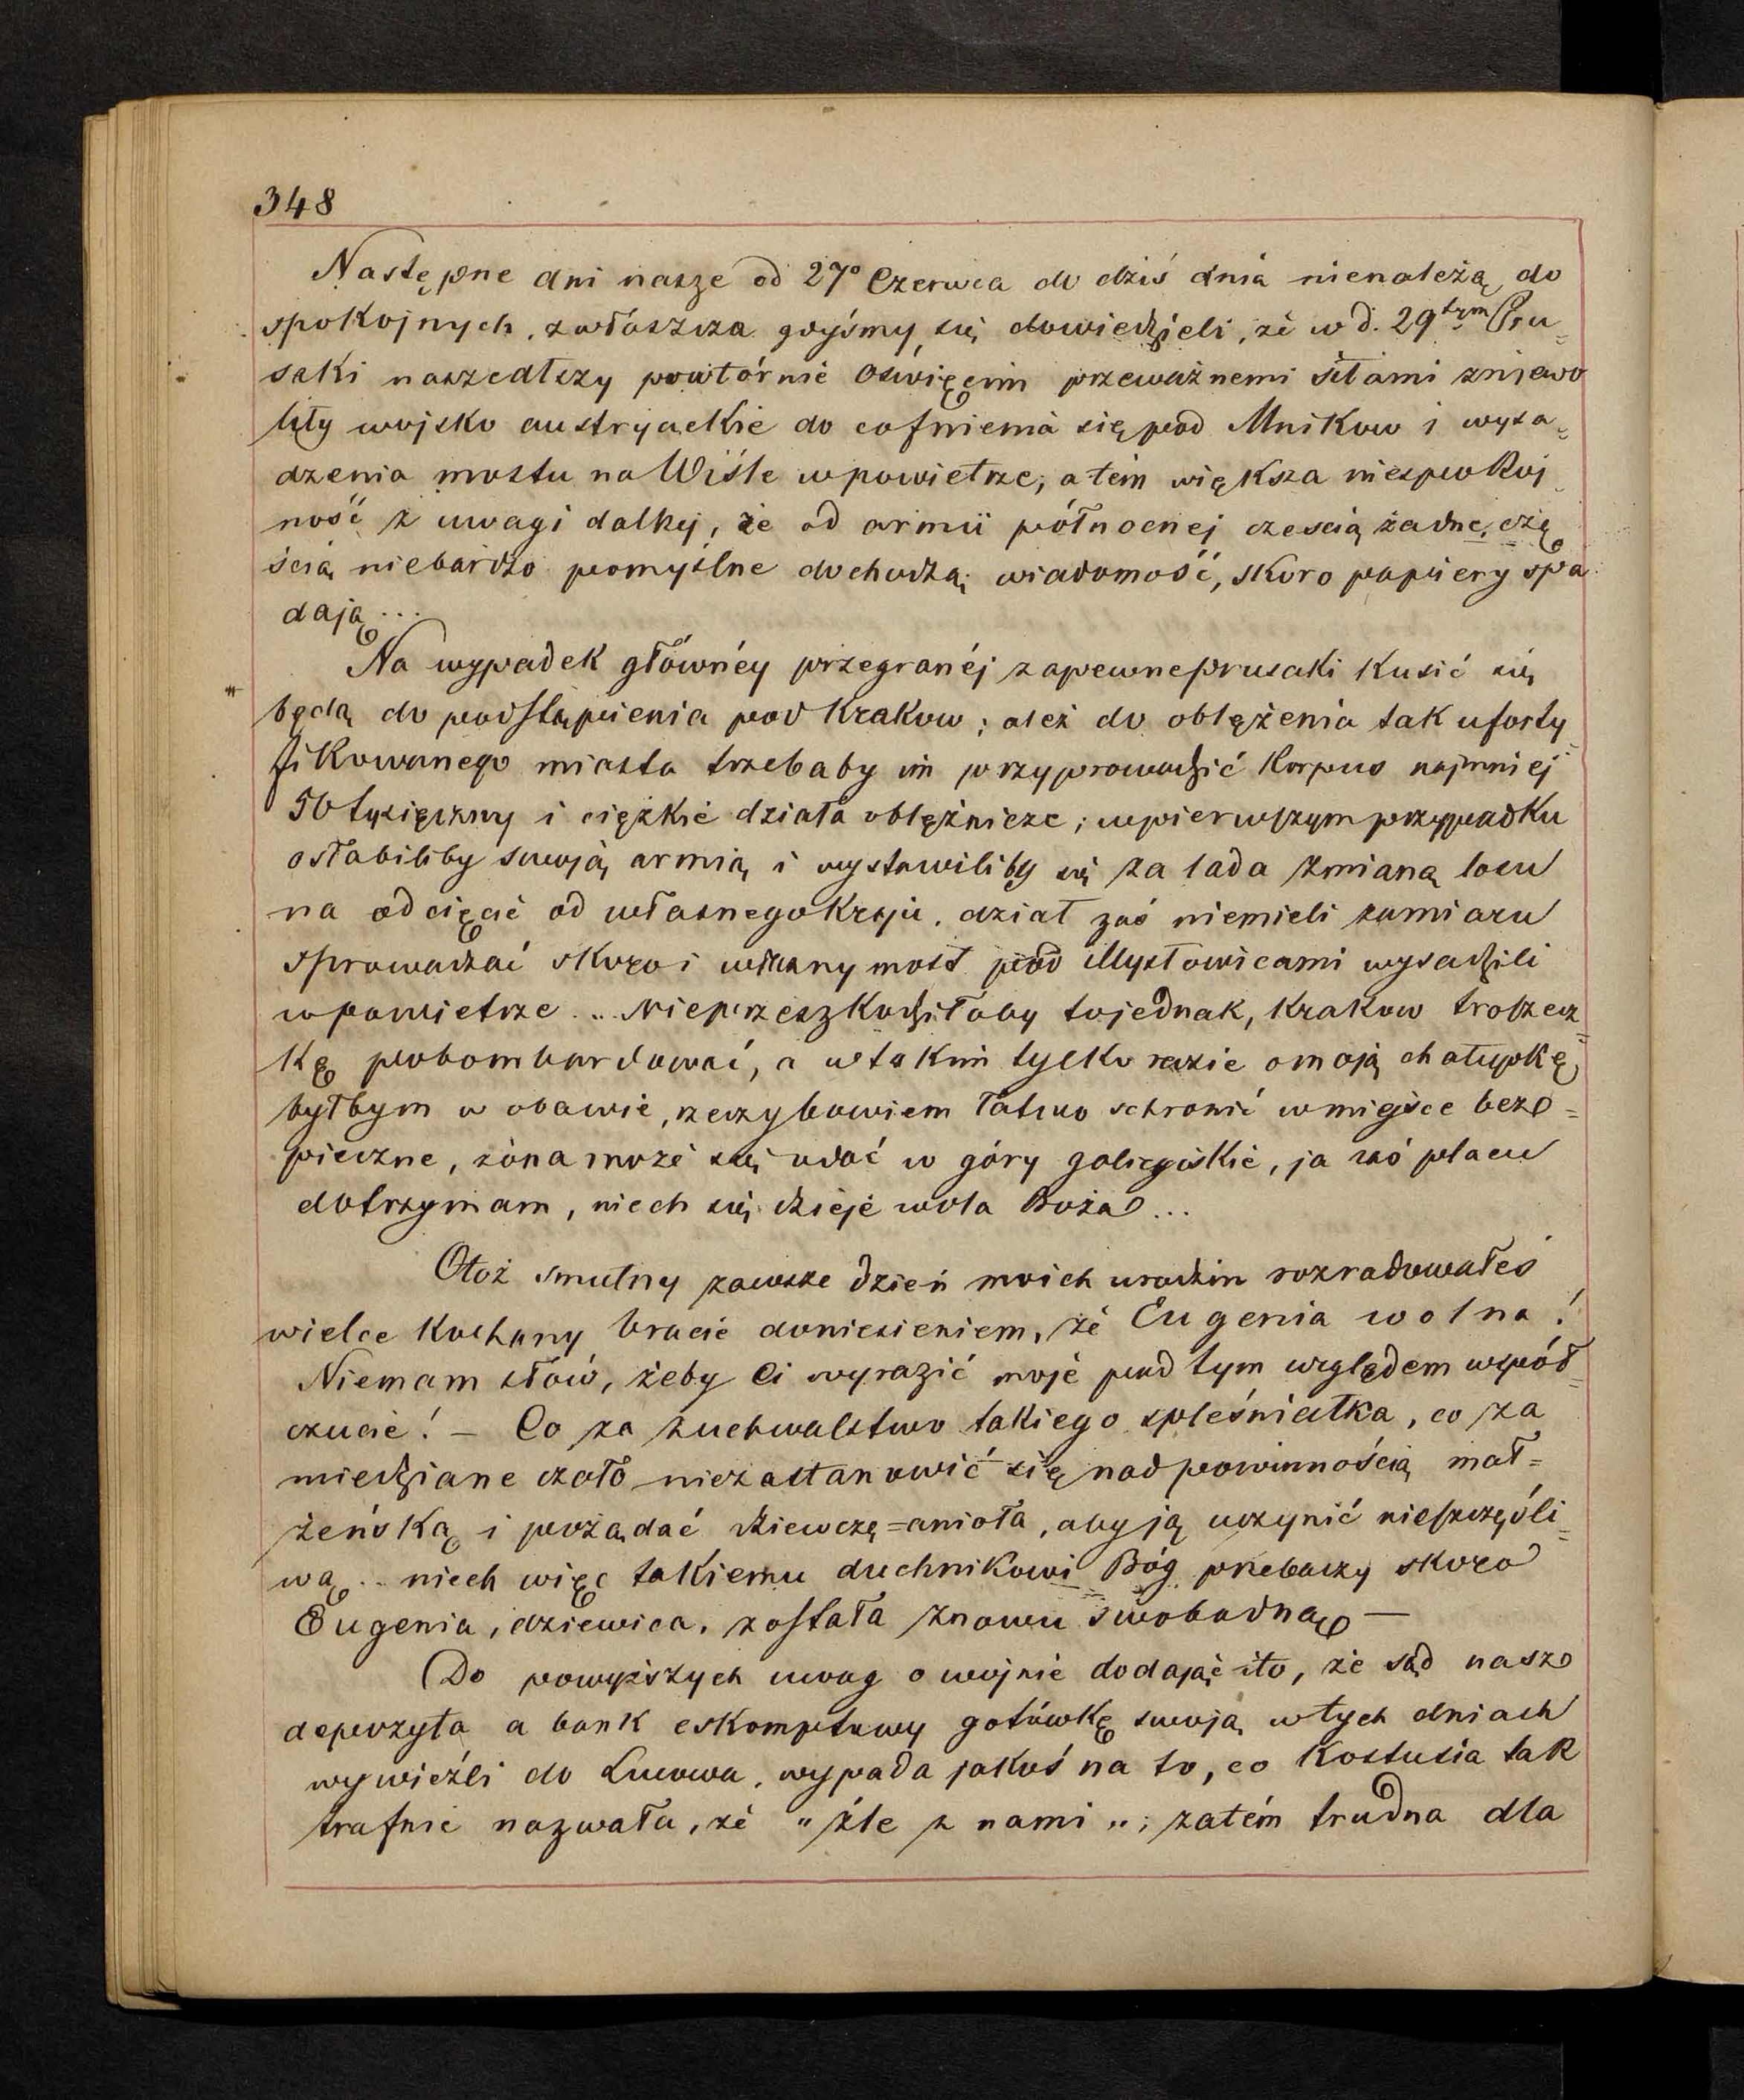 348
Następne dni nasze od 27° Czerwca do dziś dnia nienależą do
spokojnych, zwłaszcza gdyśmy się dowiedzieli, że w d. 29tym Pru=
saki naszedłszy powtórnie Oświęcim przeważnemi siłami zniewo
liły wojsko austryackie do cofnienia się pod Mnikow i wysa=
dzenia mostu na Wiśle w powietrze; a tém większa niespokoj
ność z uwagi dalszej, że od armii północnej cześcią żadne, czę
ścią niebardzo pomyślne dochodzą wiadomość, skoro papiery spa
dają...
Na wypadek głównéy przegranéj zapewne prusaki kusić się
będą do podstąpienia pod Krakow; ależ do oblężenia tak uforty
fikowanego miasta trzebaby im przyprowadzić korpus najmniej
50 tysięczny i ciężkie działa oblężnicze; w pierwszym przypadku
osłabiliby swoją armią i wystawiliby się za lada zmianą losu
na odcięcie od własnego kraju, dział zaś niemieli zamiaru
sprowadzać skoro i własny most pod Mysłowicami wysadzili
w powietrze... Nieprzeszkodziłoby to jednak, Krakow troszecz=
kę pobombardować, a w takim tylko razie o moją chatupkę
byłbym w obawie, rzeczy bowiem łatwo schronić w miejsce bez=
pieczne, żona może się udać w góry galicyjskie, ja zaś placu
dotrzymam, niech się dzieje wola Boża...
Otoż smutny zawsze dzień moich urodzin rozradowałeś
wielce kochany bracie doniesieniem, że Eugenia wolna!
Niemam słów, żeby Ci wyrazić moje pod tym względem współ=
czucie! – Co za zuchwalstwo takiego spleśniałka, co za
miedziane czoło niezastanowić się nad powinnością mał=
żeńską i pożądać dziewczę=anioła, aby ją uczynić nieszczęśli=
wą... niech więc takiemu duchnikowi Bóg przebaczy skoro
Eugenia, dziewica, została znowu swobodną –
Do powyższych uwag o wojnie dodając i to, że sąd nasz
depozyta a bank eskomptowy gotówkę swoją w tych dniach
wywieźli do Lwowa, wypada jakoś na to, co Kostusia tak
trafnie nazwała, że „źle z nami"; zatém trudna dla